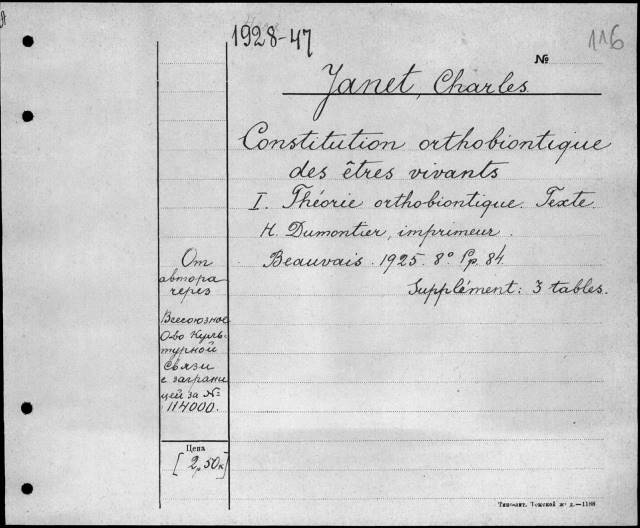 1928-47
116
№
Janet, Charles.
Constitution orthobiontique
des êtres vivants
I. Théorie orthobiontique. Texte.
H. Dumontier, imprimeur.
Beauvais. 1925. 8° Pp. 84.
Supplément: 3 tables.
От
автора
через
Всесоюзное
О-во Куль-
турной
Связи
с заграни
цей за №
114000.
Цена
[2р 50к]
Типо-лит. Томской ж. д.—1188